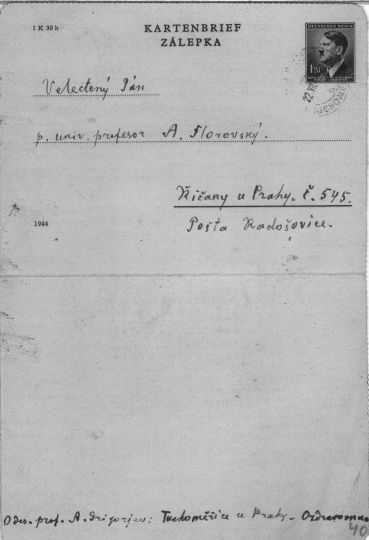 1 K 30 h
KARTENBRIEF
ZÁLEPKA
DEUTSCHES REICH
1.20
Velectěný Pán
p. univ. profesor A. Florovský.
Říčany u Prahy. č. 545.
1944
Pošta Radošovice.
Odes. prof. A. Grigorjew: Tuchoměřice u Prahy.
40